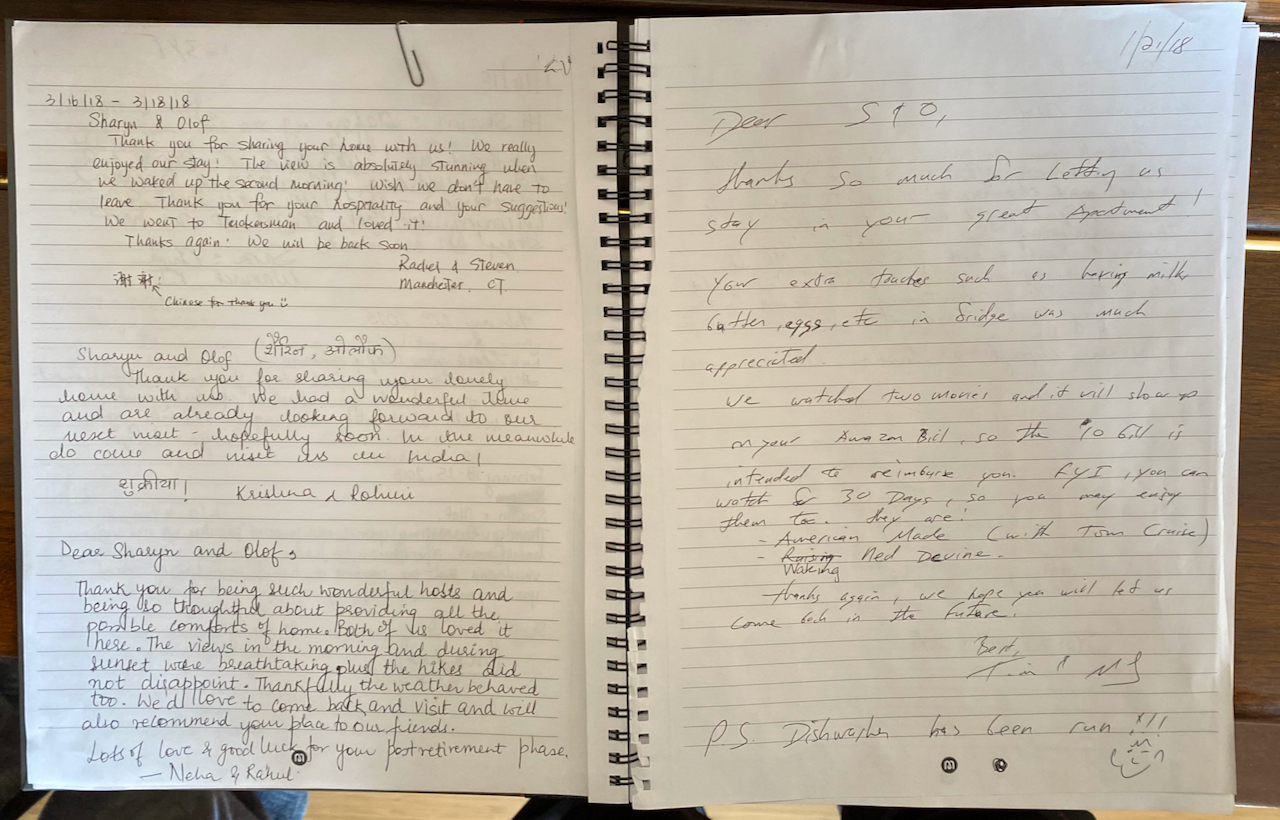 3/16/18 - 3/18/18
Sharyn & Olof
Thank you for sharing your home with us! We really
enjoyed our stay! The view is absolutely stunning when
we waked up the second morning! Wish we don't have to
leave Thank you for your hospitality and your suggestions!
We went to and loved it!
Thanks again! We will be back soon
Rachel & Steven
Manchester, CT
謝謝!
Chinese for thank you
Sharyn and Olof (शेरिन, ओलोफ)
Thank you for sharing your lovely
home with us. We had a wonderful time
and are already looking forward to our
next visit - hopefully soon. In the meanwhile
do come and visit us in India!
शुक्रीया! Krishna & Rohini
Dear Sharyn and Olof,
Thank you for being such wonderful hosts and
being so thoughtful about providing all the
possible comforts of home. Both of us loved it
here. The views in the morning and during
sunset were breathtaking plus the hikes did
not disappoint. Thankfully the weather behaved
too. We'd love to come back and visit and will
also recommend your place to our friends.
Lots of love & good luck for your postretirement phase.
— Neha & Rahul.
1/21/18
Dear S & O,
thanks so much for Letting us
stay in your great Apartment!
Your extra touches such as having milk,
butter, eggs, etc in fridge was much
appreciated.
We watched two movies and it will show up
on your Amazon Bill, so the $10 bill is
intended to reimburse you. FYI, you can
watch for 30 Days, so you may enjoy
them too. they are:
- American Made (with Tom Cruise)
- Raising Ned Devine.
Waking
thanks again, we hope you will let us
come back in the Future.
Best,
Tim &
P.S Dishwasher has been run!!!